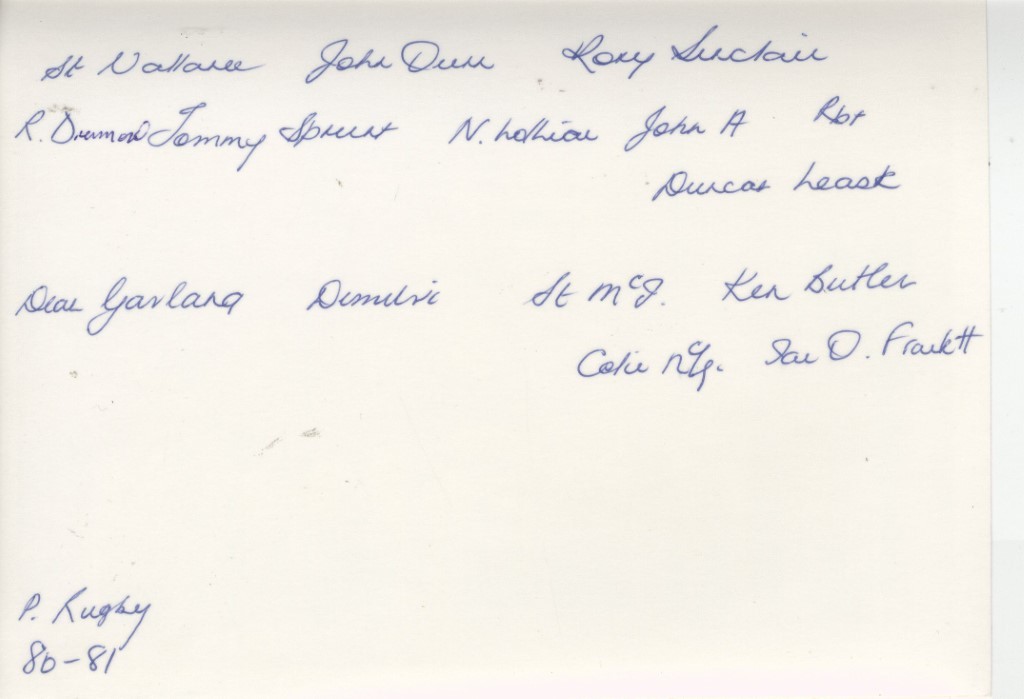 St Wallace John Dunn Rory Sinclair
R. Drumond Tommy Sprunt N. Lothian John A Rbt
Duncan Leask
Dean Garland Dimitri St McJ. Ken Butler
Colin Ian O. Frackett
P. Rugby
80-81